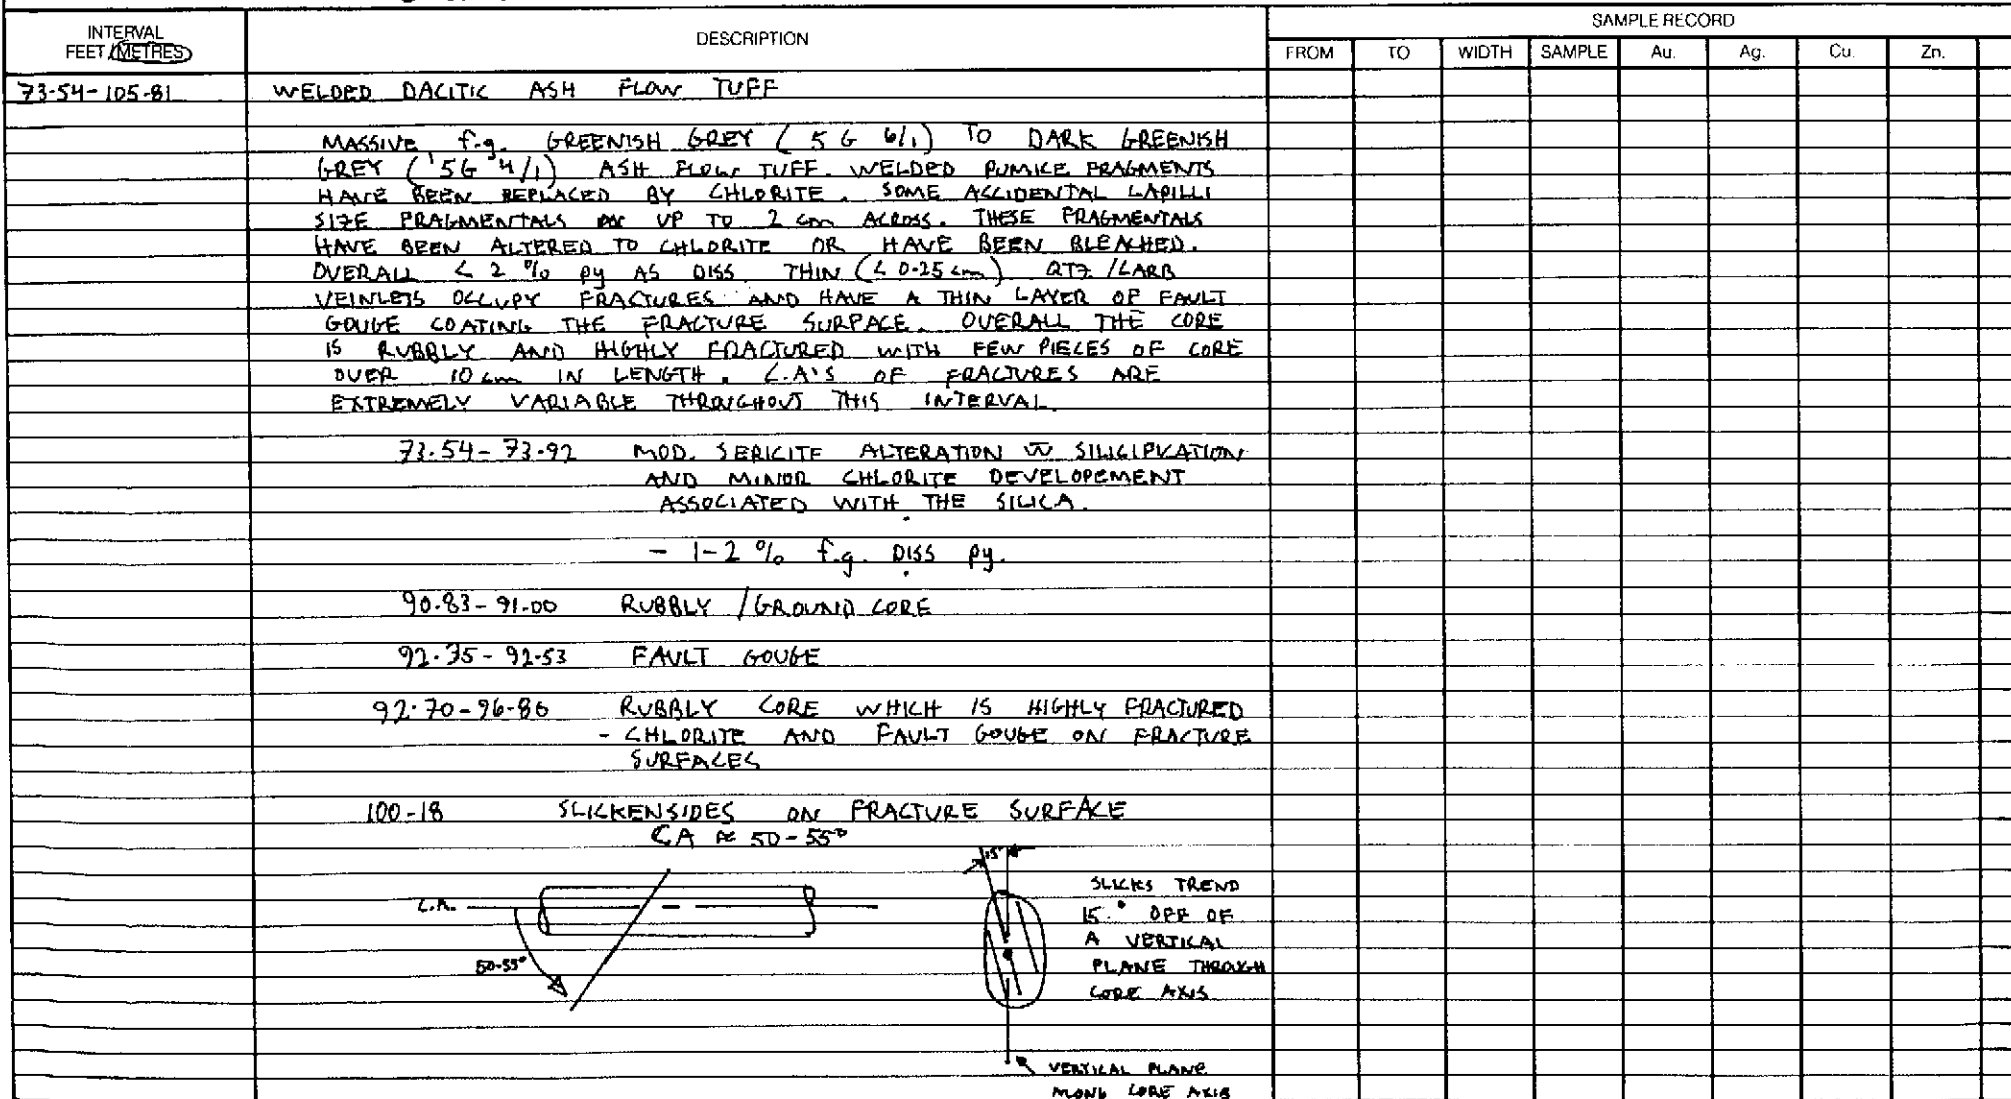 INTERVAL
FEET (METRES)
DESCRIPTION
SAMPLE RECORD
FROM TO WIDTH SAMPLE Au. Ag. Cu. Zn.
73.54-105.81 WELDED DACITIC ASH FLOW TUFF
MASSIVE, f.g. GREENISH GREY (5G 6/1) TO DARK GREENISH
GREY (5G 4/1) ASH FLOW TUFF. WELDED PUMICE FRAGMENTS
HAVE BEEN REPLACED BY CHLORITE. SOME ACCIDENTAL LAPILLI
SIZE FRAGMENTALS UP TO 2 cm ACROSS. THESE FRAGMENTALS
HAVE BEEN ALTERED TO CHLORITE OR HAVE BEEN BLEACHED.
OVERALL < 2 % py AS DISS. THIN (< 0.25 cm) QTZ/CARB
VEINLETS OCCUPY FRACTURES AND HAVE A THIN LAYER OF FAULT
GOUGE COATING THE FRACTURE SURFACE. OVERALL THE CORE
IS RUBBLY AND HIGHLY FRACTURED WITH FEW PIECES OF CORE
OVER 10 cm IN LENGTH. C.A'S OF FRACTURES ARE
EXTREMELY VARIABLE THROUGHOUT THIS INTERVAL.
73.54-73.92 MOD. SERICITE ALTERATION W SILICIFICATION
AND MINOR CHLORITE DEVELOPEMENT
ASSOCIATED WITH THE SILICA.
- 1-2 % f.g. DISS py.
90.83-91.00 RUBBLY / GROUND CORE
92.35-92.53 FAULT GOUGE
92.70-96.86 RUBBLY CORE WHICH IS HIGHLY FRACTURED
- CHLORITE AND FAULT GOUGE ON FRACTURE
SURFACES
100.18 SLICKENSIDES ON FRACTURE SURFACE
CA ≈ 50-55°
15°
C.A.
50-55°
SLICKS TREND
15° OFF OF
A VERTICAL
PLANE THROUGH
CORE AXIS
VERTICAL PLANE
ALONG CORE AXIS